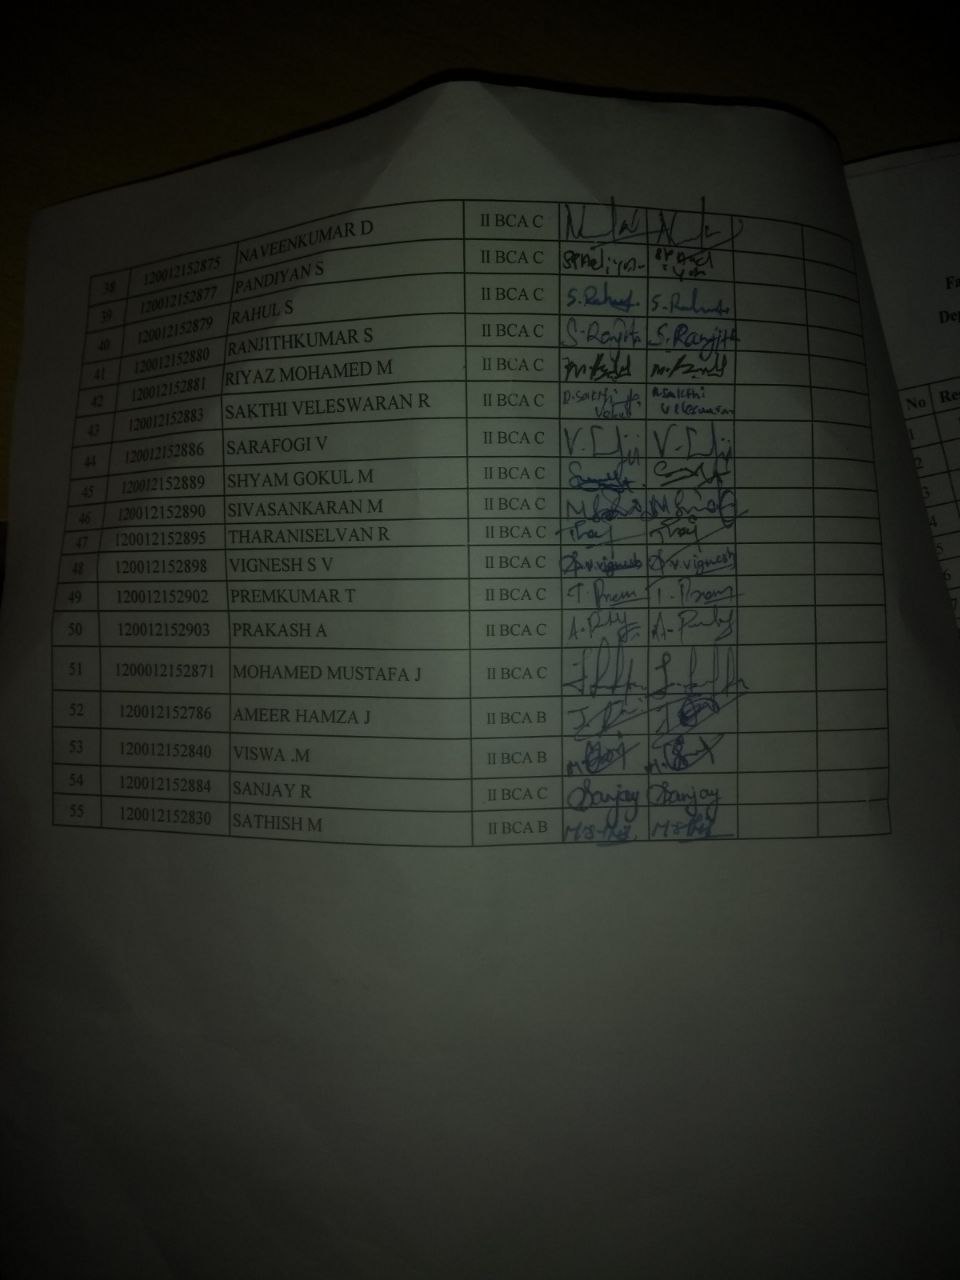 38 120012152875 NAVEENKUMAR D II BCA C
39 120012152877 PANDIYAN S II BCA C
40 120012152879 RAHUL S II BCA C S. Rahul S. Rahul
41 120012152880 RANJITHKUMAR S II BCA C S. Ranjith S. Ranjith
42 120012152881 RIYAZ MOHAMED M II BCA C
43 120012152883 SAKTHI VELESWARAN R II BCA C R. Sakthi R. Sakthi Veleswaran
44 120012152886 SARAFOGI V II BCA C
45 120012152889 SHYAM GOKUL M II BCA C
46 120012152890 SIVASANKARAN M II BCA C
47 120012152895 THARANISELVAN R II BCA C
48 120012152898 VIGNESH S V II BCA C S.V.Vignesh S.V.Vignesh
49 120012152902 PREMKUMAR T II BCA C T. Prem T. Prem
50 120012152903 PRAKASH A II BCA C
51 1200012152871 MOHAMED MUSTAFA J II BCA C
52 120012152786 AMEER HAMZA J II BCA B
53 120012152840 VISWA .M II BCA B
54 120012152884 SANJAY R II BCA C Sanjay Sanjay
55 120012152830 SATHISH M II BCA B
No Re
1
2
3
4
5
6